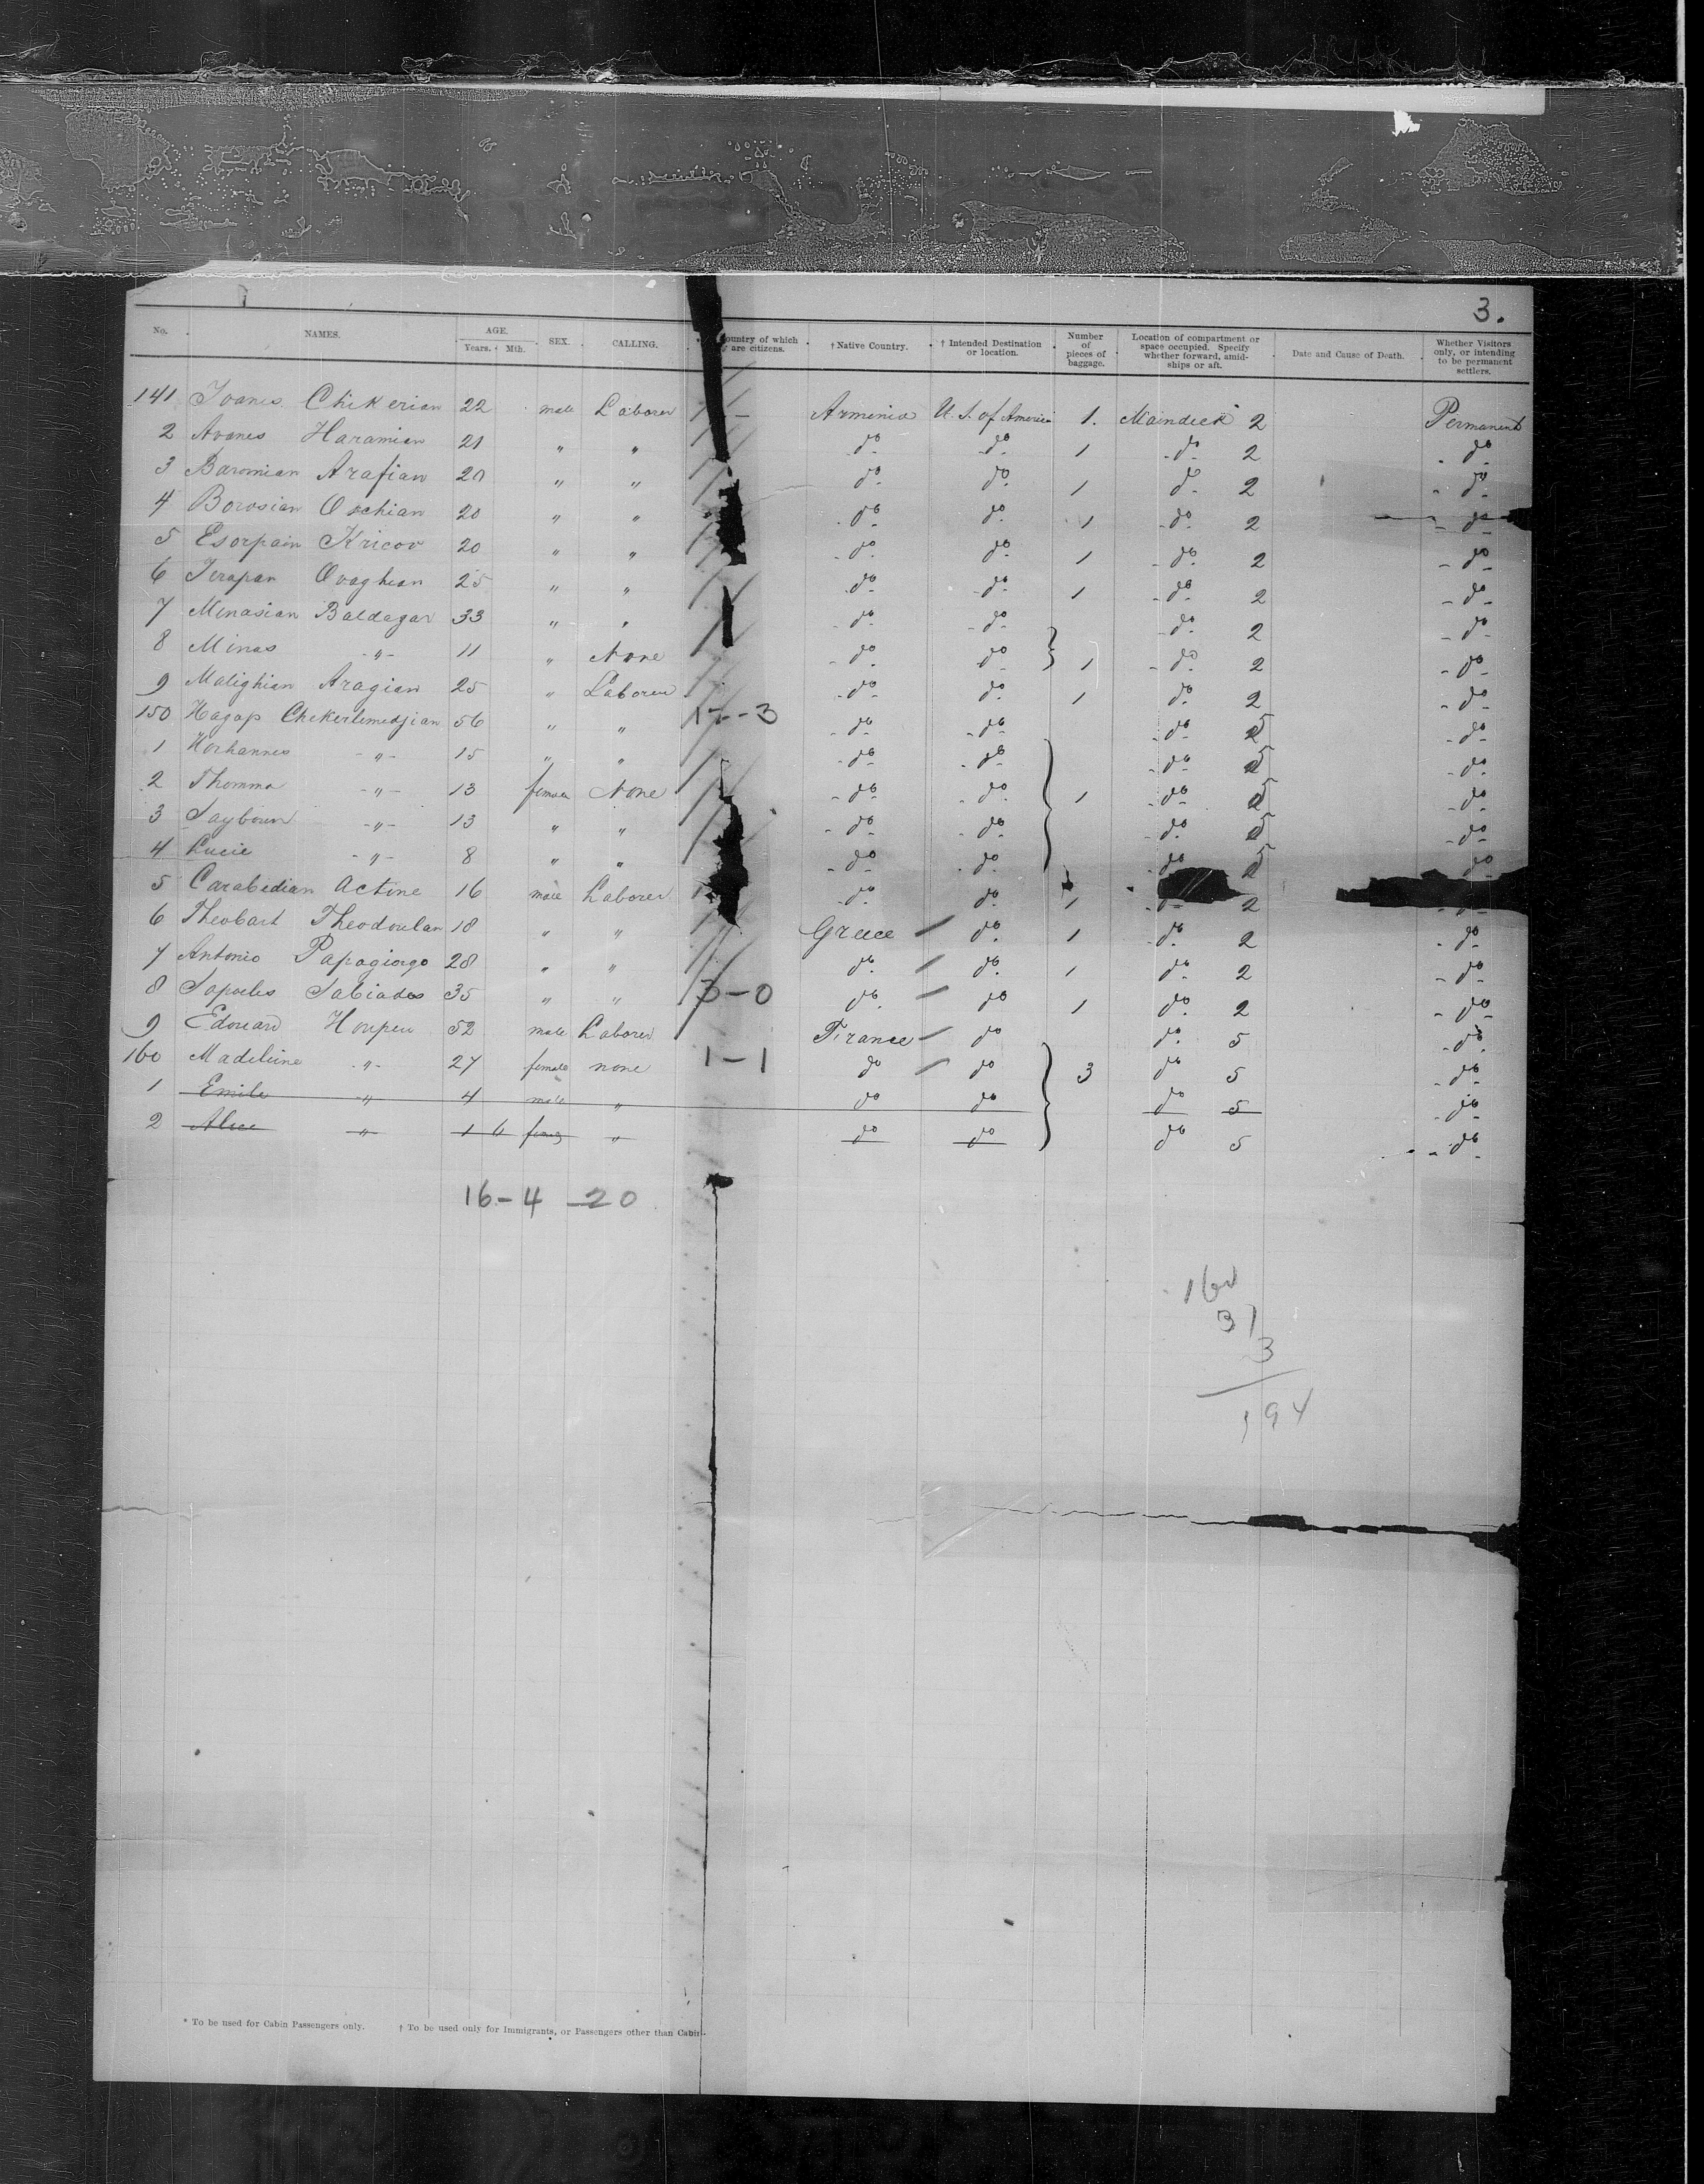 3.
No. NAMES. AGE. Years. Mth. SEX. CALLING. Country of which are citizens. †Native Country. † Intended Destination or location. Number of pieces of baggage. Location of compartment or space occupied. Specify whether forward, amidships or aft. Date and Cause of Death. Whether Visitors only, or intending to be permanent settlers.
141 Ivanes Chikerian 22 male Laborer Armenia U. S. of America 1. Maindeck 2 Permanent
2 Avanes Haramian 21 " " do do 1 do 2 do
3 Baromian Arafian 20 " " do do 1 do 2 do
4 Borosian Oschian 20 " " do do 1 do 2 do
5 Esorpain Kricor 20 " " do do 1 do 2 do
6 Terapan Ovaghian 25 " " do do 1 do 2 do
7 Minasian Baldagar 33 " " do do do 2 do
8 Minas -"- 11 " None do do 1 do 2 do
9 Malighian Aragian 25 " Laborer do do 1 do 2 do
150 Hagop Chekerlemedjian 56 " " 1--3 do do do 5 do
1 Horhannes -"- 15 " " do do do 5 do
2 Thomma -"- 13 female None do do 1 do 5 do
3 -"- 13 " " do do do 5 do
4 Lucie -"- 8 " " do do do 5 do
5 Carabedian Actine 16 male Laborer do do 1 do 2 do
6 Theobart Theodoulan 18 " " Greece do 1 do 2 do
7 Antonio Papagiorgo 28 " " do do 1 do 2 do
8 Sapocles Sabiados 35 " " 3-0 do do 1 do 2 do
9 Edouard 52 male Laborer France do do 5 do
160 Madeleine -"- 27 female none 1-1 do do 3 do 5 do
1 Emile -"- 4 male " do do do 5 do
2 Alice -"- 1 6 female " do do do 5 do
16-4 -20
31
3
194
* To be used for Cabin Passengers only. † To be used only for Immigrants, or Passengers other than Cabin.